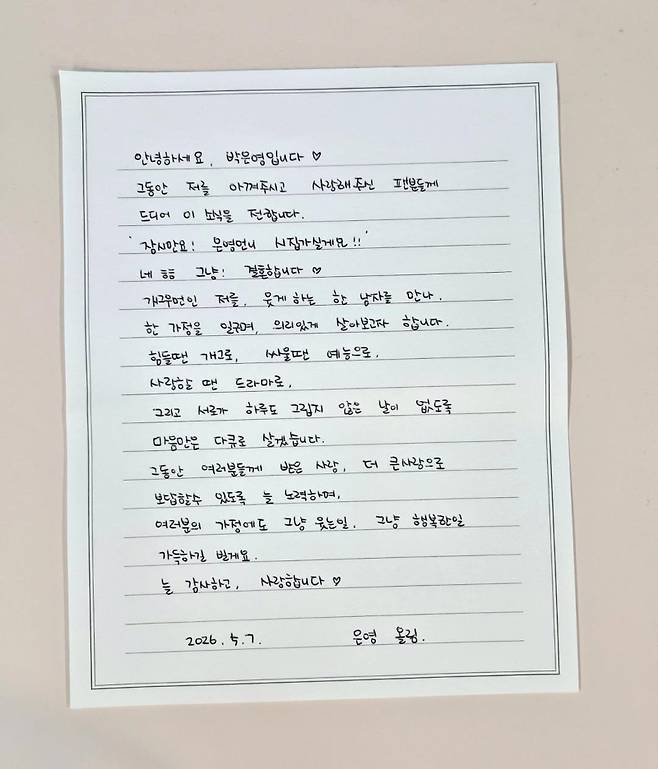 안녕하세요, 박은영입니다 ♡
그동안 저를 아껴주시고 사랑해주신 팬분들께
드디어 이 소식을 전합니다.
'잠시만요! 은영언니 시집가실게요!!'
네 흠흠 그냥! 결혼합니다 ♡
개그우먼인 저를, 웃게하는 한 남자를 만나.
한 가정을 일구며, 의리있게 살아보고자 합니다.
힘들땐 개그로, 싸울땐 예능으로,
사랑할 땐 드라마로,
그리고 서로가 하루도 그립지 않은 날이 없도록
마음만은 다큐로 살겠습니다.
그동안 여러분들께 받은 사랑, 더 큰사랑으로
보답할수 있도록 늘 노력하며,
여러분의 가정에도 그냥 웃는일, 그냥 행복한일
가득하길 빌게요.
늘 감사하고, 사랑합니다 ♡
2026. 5. 7. 은영 올림.